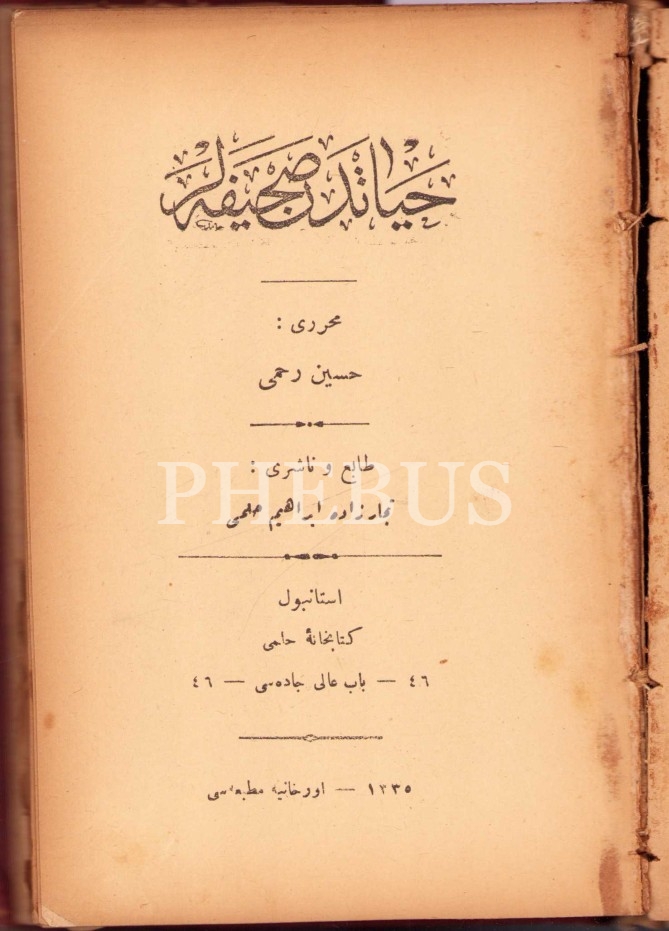 حیاتدن صحیفه‌لر
محرری :
حسین رحمی
طابع و ناشری :
PHEBUS
تجارزاده ابراهیم حلمی
استانبول
کتابخانهٔ حلمی
٤٦ — باب عالی جاده‌سی — ٤٦
١٣٣٥ — اورخانیه مطبعه‌سی